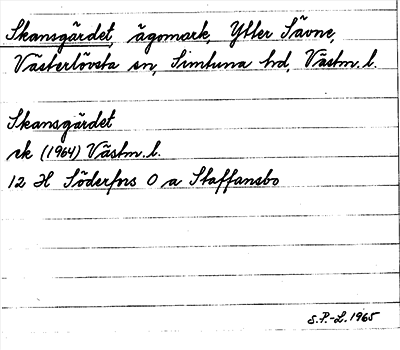 Skansgärdet, ägomark, Ytter Sävne,
Västerlövsta sn, Simtuna hd, Västm. l.
Skansgärdet
ek (1964) Västm. l.
12 H Söderfors O a Staffansbo
S.P.-L. 1965